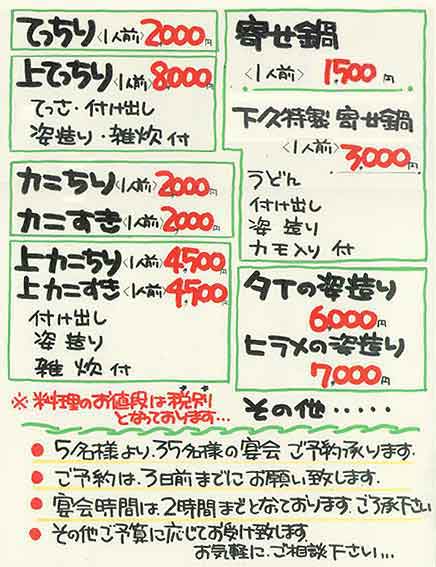 てっちり〈1人前〉2,000円
上てっちり〈1人前〉8,000円
てっさ・付け出し
姿造り・雑炊 付
カニちり〈1人前〉2,000円
カニすき〈1人前〉2,000円
上カニちり〈1人前〉4,500円
上カニすき〈1人前〉4,500円
付け出し
姿造り
雑炊 付
寄せ鍋
〈1人前〉1,500円
下久特製 寄せ鍋
〈1人前〉3,000円
うどん
付け出し
姿造り
カモ入り 付
タイの姿造り
6,000円
ヒラメの姿造り
7,000円
その他・・・・・
※料理のお値段は税別
となっております・・・
● 5名様より、35名様の宴会 ご予約承ります。
● ご予約は、3日前までにお願い致します。
● 宴会時間は、2時間までとなっております。ご了承下さい
● その他ご予算に応じてお受け致します。
お気軽に、ご相談下さい・・・